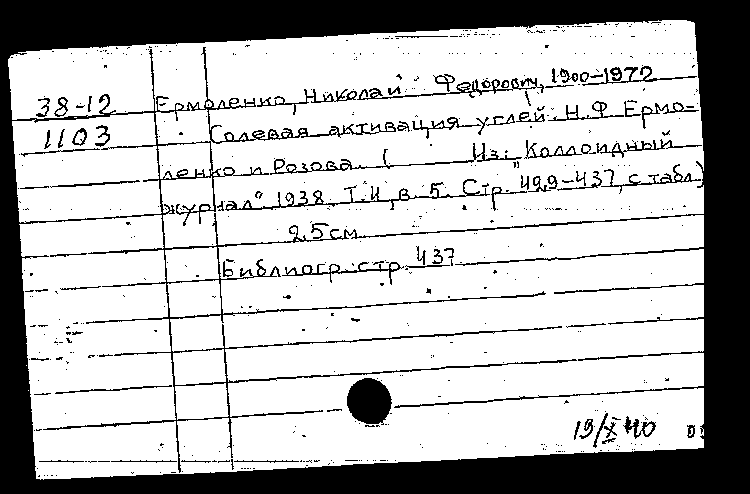 38-12 Ермоленко, Николай Федорович, 1900-1972
1103 Солевая активация углей. Н.Ф. Ермо-
ленко и Розова. ( Из: „Коллоидный
журнал" 1938, Т.4, в. 5. Стр. 429-437, с табл.)
25 см
Библиогр. стр. 437
19/X 40